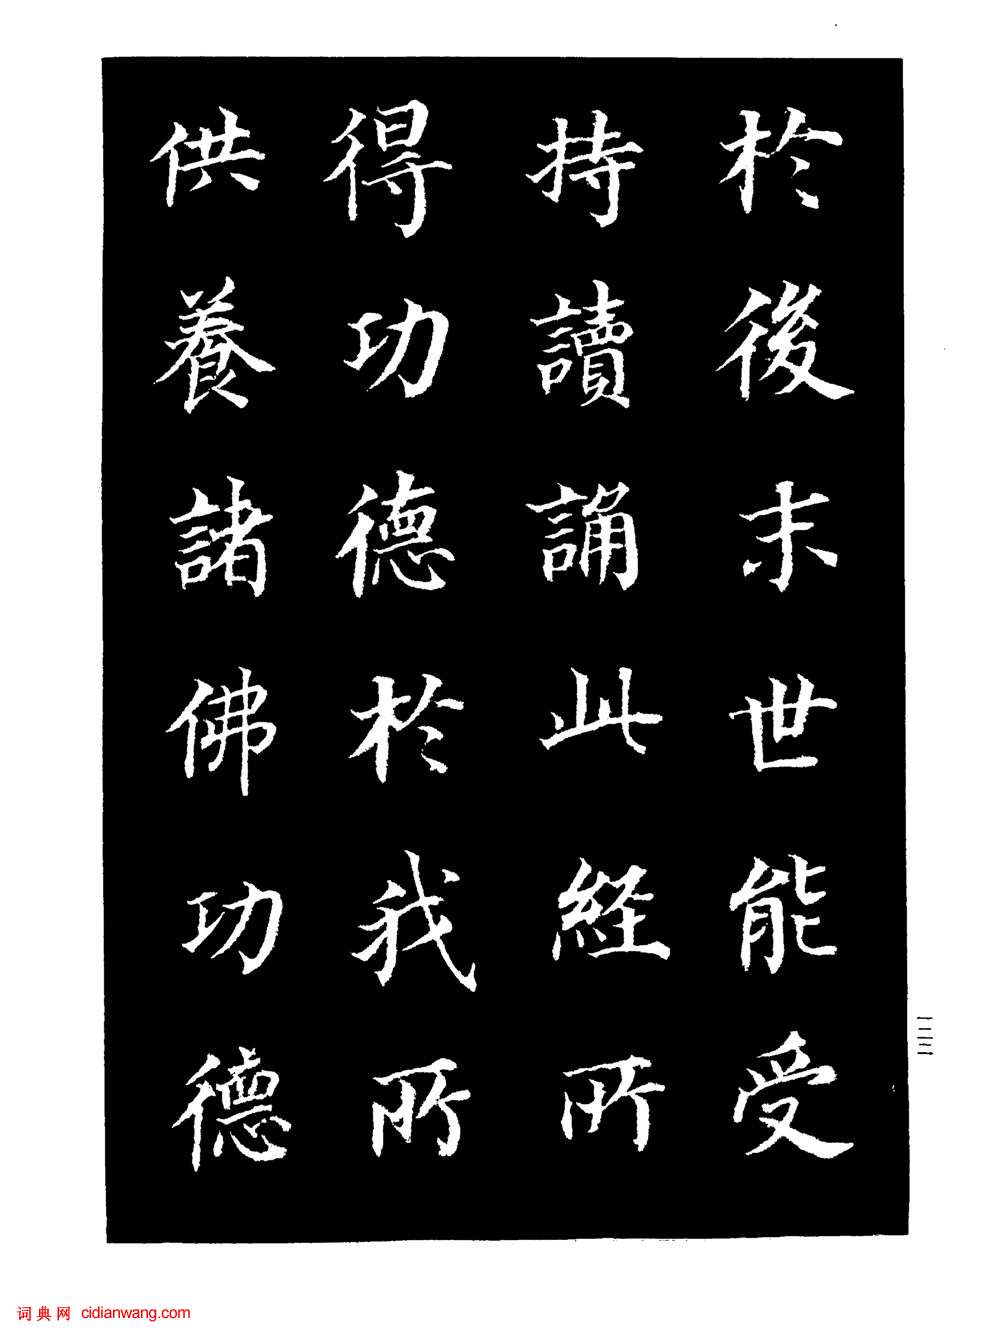 於後末世能受
持讀誦此経所
得功德於我所
供養諸佛功德
一二三
词典网 cidianwang.com